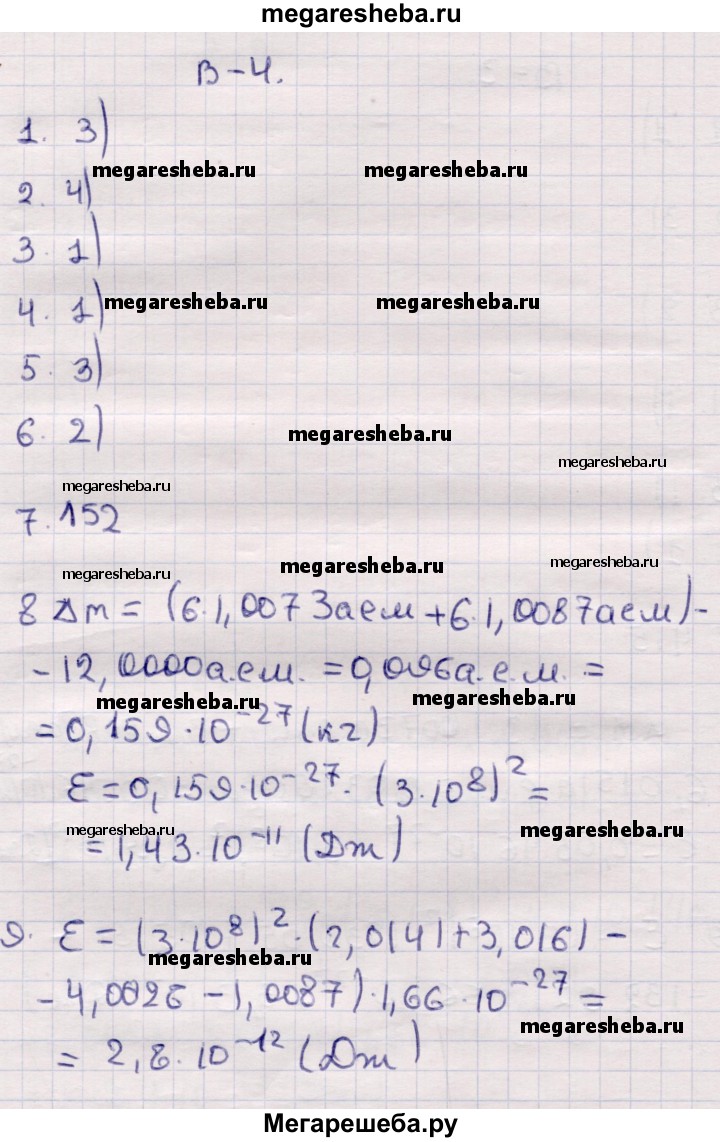 megaresheba.ru
В-4.
1. 3)
megaresheba.ru megaresheba.ru
2. 4)
3. 1)
4. 1)
megaresheba.ru megaresheba.ru
5. 3)
6. 2)
megaresheba.ru
megaresheba.ru
megaresheba.ru
7. 152
megaresheba.ru megaresheba.ru
megaresheba.ru
8 Δm = (6·1,0073аем + 6·1,0087аем) -
- 12,0000а.ем. = 0,096а.е.м. =
megaresheba.ru megaresheba.ru
= 0,159·10⁻²⁷ (кг)
ε = 0,159·10⁻²⁷·(3·10⁸)² =
megaresheba.ru megaresheba.ru
= 1,43·10⁻¹¹ (Дж)
9. ε = (3·10⁸)²·(2,0141+3,016) -
megaresheba.ru
- 4,0026 - 1,0087)·1,66·10⁻²⁷ =
megaresheba.ru
= 2,8·10⁻¹² (Дж)
Мегарешеба.ру